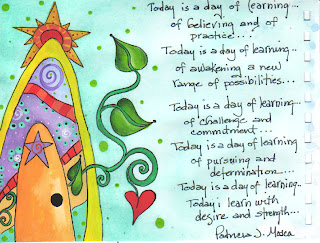 Today is a day of learning...
of believing and of
practice....
Today is a day of learning...
of awakening a new
range of possibilities...
Today is a day of learning...
of challenge and
commitment...
Today is a day of learning
of pursuing and
determination....
Today is a day of learning..
Today i learn with
desire and strength...
Patricia J. Mosca